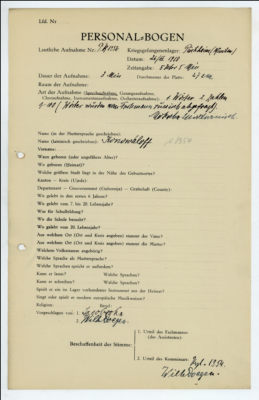 Lfd. Nr.
PERSONAL-BOGEN
Lautliche Aufnahme Nr.: Kriegsgefangenenlager: Parchim
Datum:
Zeitangabe: 5 Uhr 5 Min
Dauer der Aufnahme: 2 Min Durchmesser der Platte: 27 cm
Raum der Aufnahme:
Art der Aufnahme (Sprechaufnahme, Gesangsaufnahme, Chroaufnahme, Instrumentenaufnahme, Orchesteraufnahme): 1. Wörter 2. Zahlen
1-100 (Wörter
Name (in der Muttersprache geschrieben):
Name (lateinisch geschrieben):
Vorname:
Wann geboren (oder ungefähres Alter)?
Wo geboren (Heimat)?
Welche größere Stadt liegt in der Nähe des Geburtsortes?
Kanton — Kreis (Ujedz):
Departement — Gouvernement (Gubernija) — Grafschaft (County):
Wo gelebt in den ersten 6 Jahren?
Wo gelebt vom 7. bis 20. Lebensjahr?
Was für Schulbildung?
Wo die Schule besucht?
Wo gelebt vom 20. Lebensjahr?
Aus welchem Ort (Ort und Kreis angeben) stammt der Vater?
Aus welchem Ort (Ort und Kreis angeben) stammt die Mutter?
Welchem Volksstamm angehörig?
Welche Sprache als Muttersprache?
Welche Sprachen spricht er außerdem?
Kann er lesen? Welche Sprachen?
Kann er schreiben? Welche Sprachen?
Spielt er ein im Lager vorhandenes Instrument aus der Heimat?
Singt oder spielt er modern europäische Musikweisen?
Religion: Beruf:
Vorgeschlagen von: 1.
2. Wilh. Doegen
Beschaffenheit der Stimme:
1. Urteil des Fachmannes (des Assistenten):
2. Urteil des Kommissars:
Wilh. Doegen